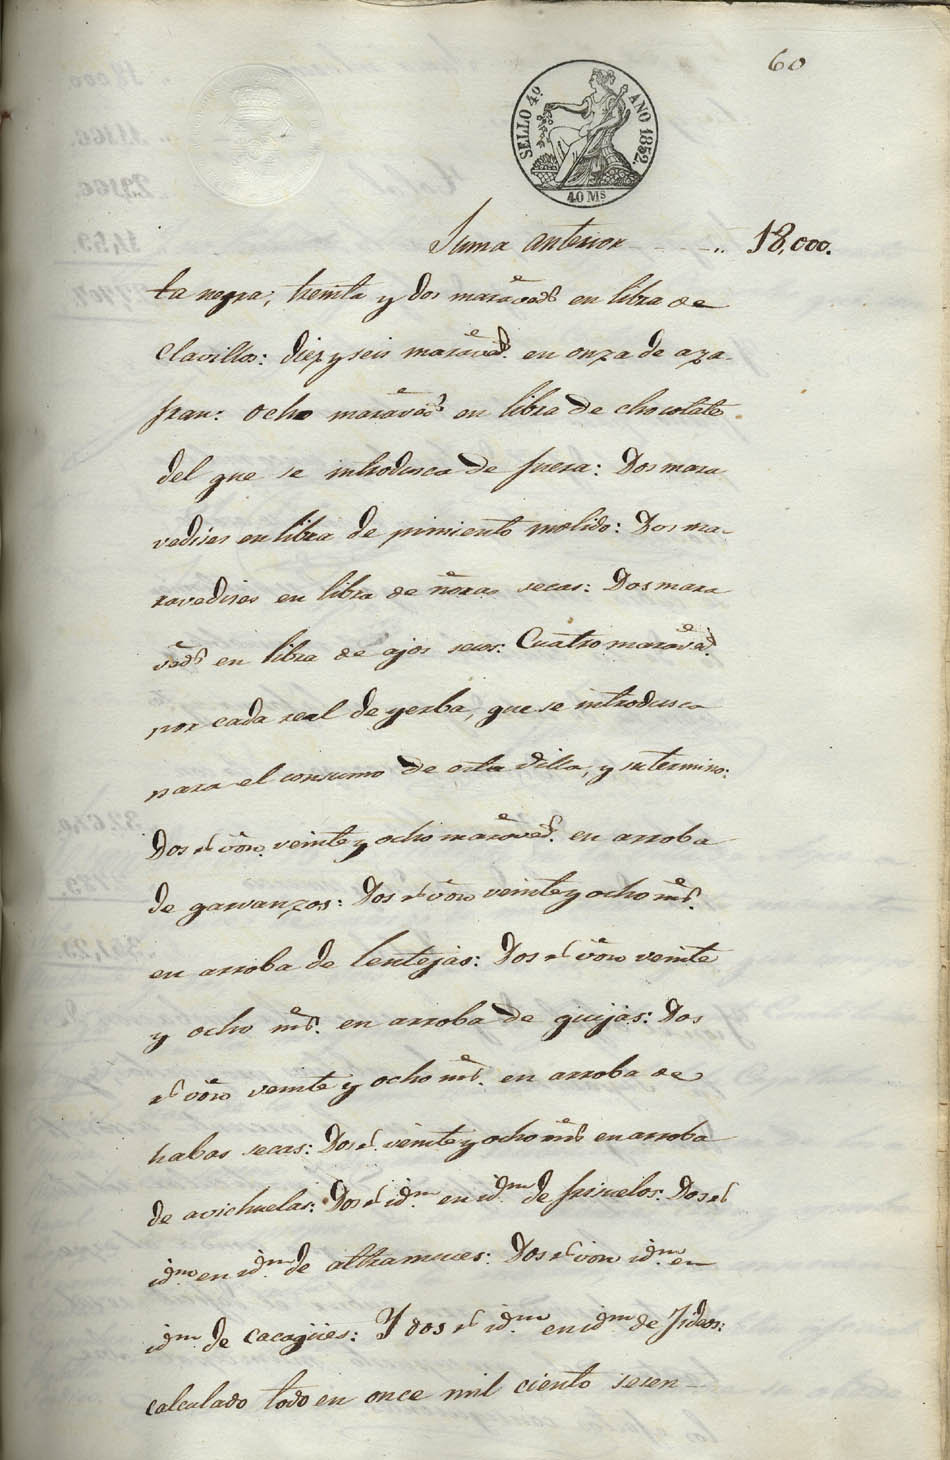 60
SELLO 4º AÑO 1852.
40 Ms
Suma anterior ----- .. 18,000.
ta negra; treinta y dos maraveds en libra de
clavillo: diez y seis maraved. en onza de aza-
fran: ocho maraveds en libra de chocolate
del que se introdusca de fuera: Dos mara
vedises en libra de pimiento molido: Dos ma-
ravedises en libra de ñoras secas: Dos mara
veds en libra de ajos secos: Cuatro maraved.
por cada real de yerba, que se introdusca
para el consumo de esta Villa, y su termino:
Dos rs von. veinte y ocho maraved. en arroba
de garvanzos: Dos rs von veinte y ocho ms.
en arroba de lentejas: Dos rs von veinte
y ocho ms. en arroba de guijas: Dos
rs von veinte y ocho ms. en arroba de
habas secas: Dos rs. veinte y ocho ms en arroba
de avichuelas: Dos rs idm. en idm de frisuelos: Dos rs
idm en idm de altramuces: Dos rs von idm. en
idm de cacagües: Y dos rs idm en idm de Fideos:
calculado todo en once mil ciento sesen-